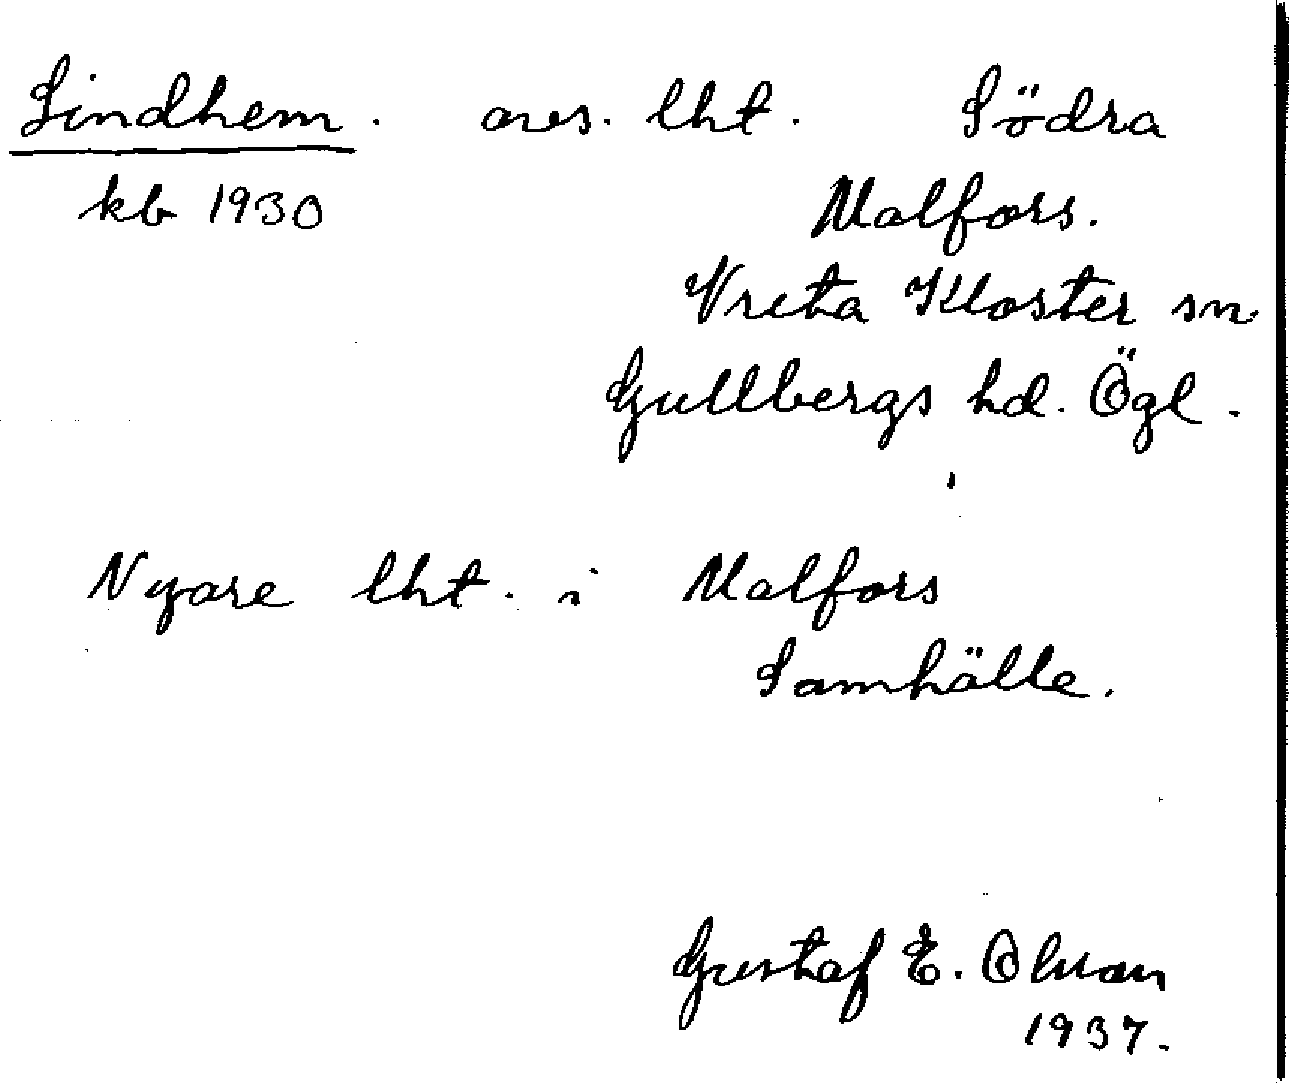 Lindhem. avs. lht. Södra
kb 1930
Malfors.
Vreta Kloster sn
Gullbergs hd. Ögl.
Nyare lht. i Malfors
Samhälle.
Gustaf E. Olsson
1937.